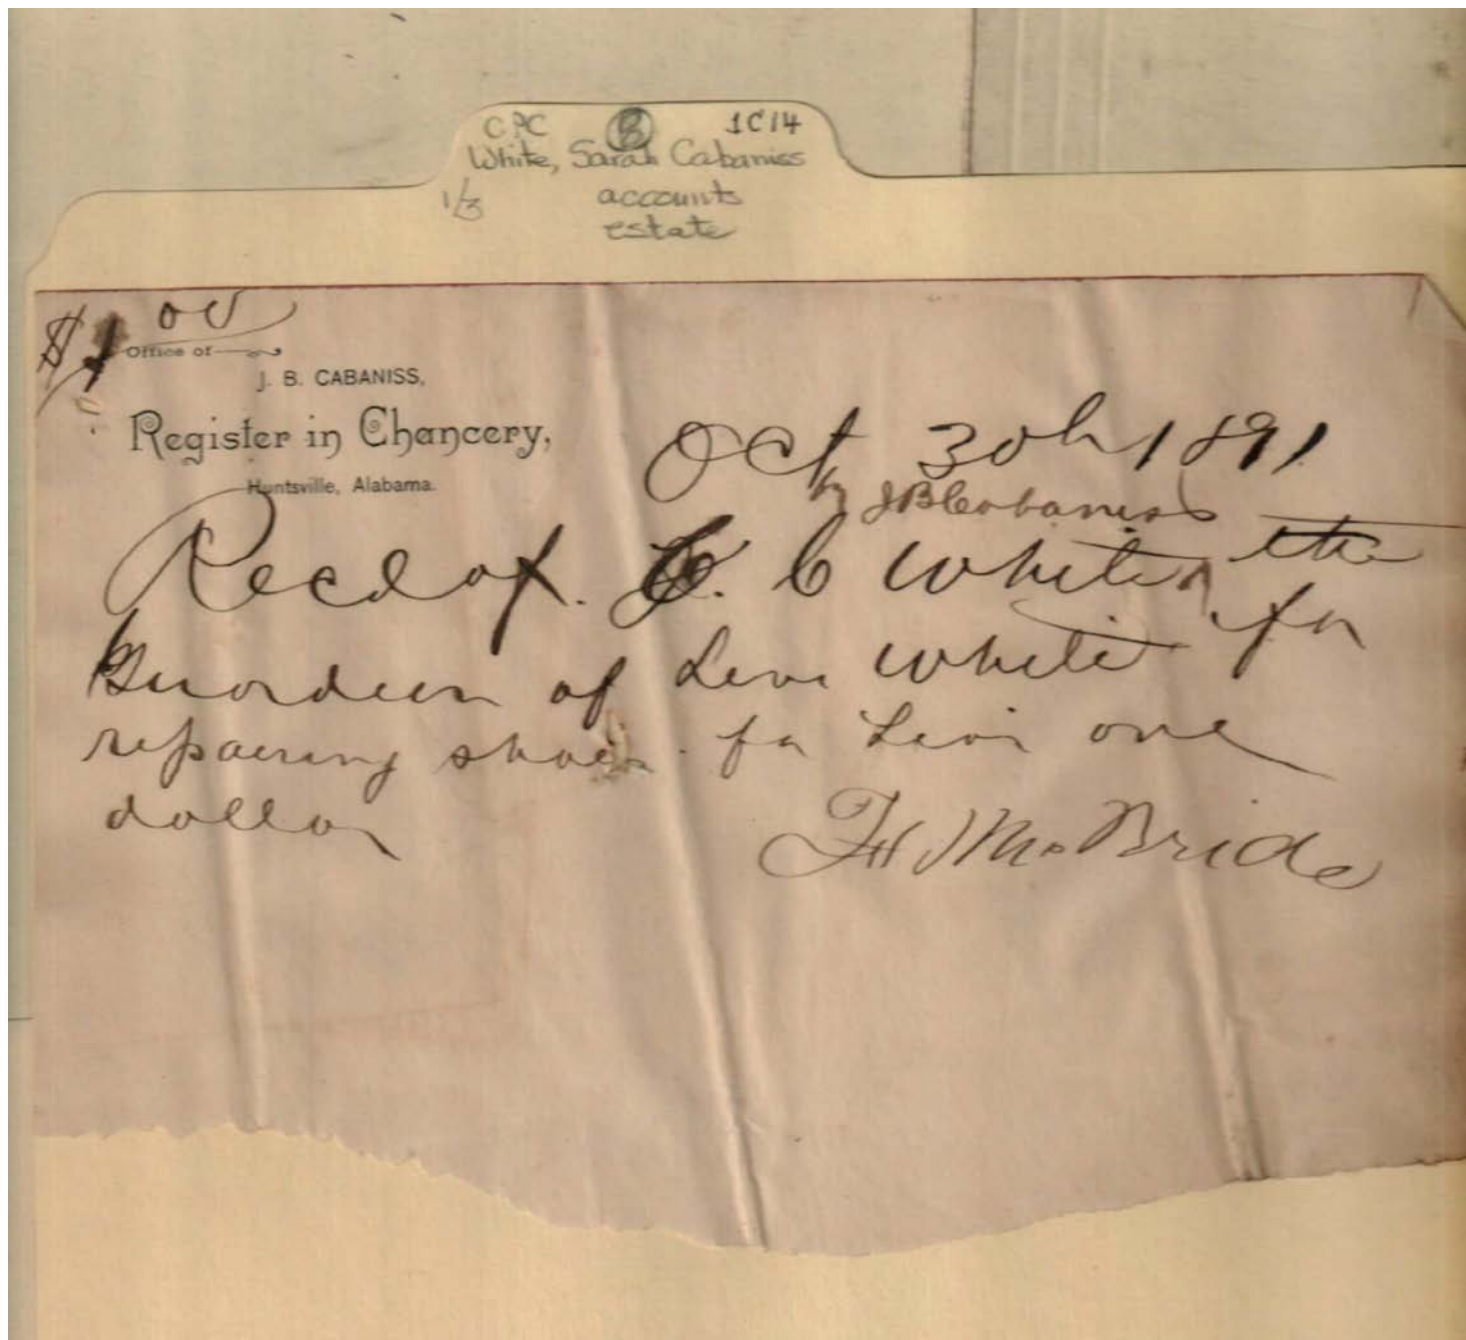 CPC B 1C14
White, Sarah Cabaniss
1/3 accounts
estate
$1 00
Office of
J. B. CABANISS,
Register in Chancery,
Huntsville, Alabama.
Oct 30th 1891
by J B Cabaniss
Recd of C White the
Guardeen of Levi White for
repairing shoes for Levi one
dollar
McBride